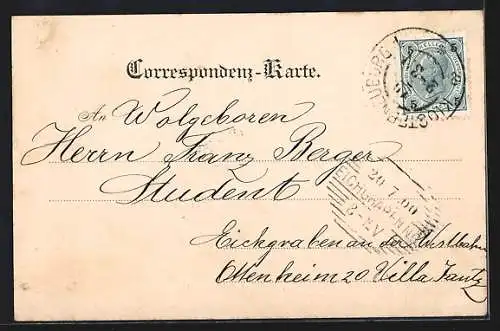 Correspondenz-Karte.
An Wolgeboren
Herrn Franz Berger
Student
Eichgraben an der Westbahn
Ottenheim 20 Villa Jantz
KLOSTERNEUBURG
5 5
5 5
20.7.00
EICHGRABEN